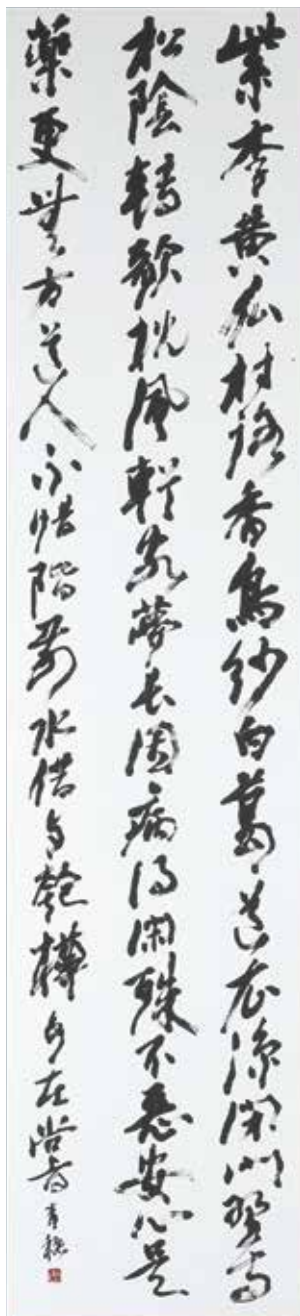 紫李黄瓜村路香烏紗白葛道衣涼閉門野寺
松陰轉欹枕風軒客夢長因病得閑殊不惡安心是
藥更無方道人不惜階前水借与匏樽自在嘗